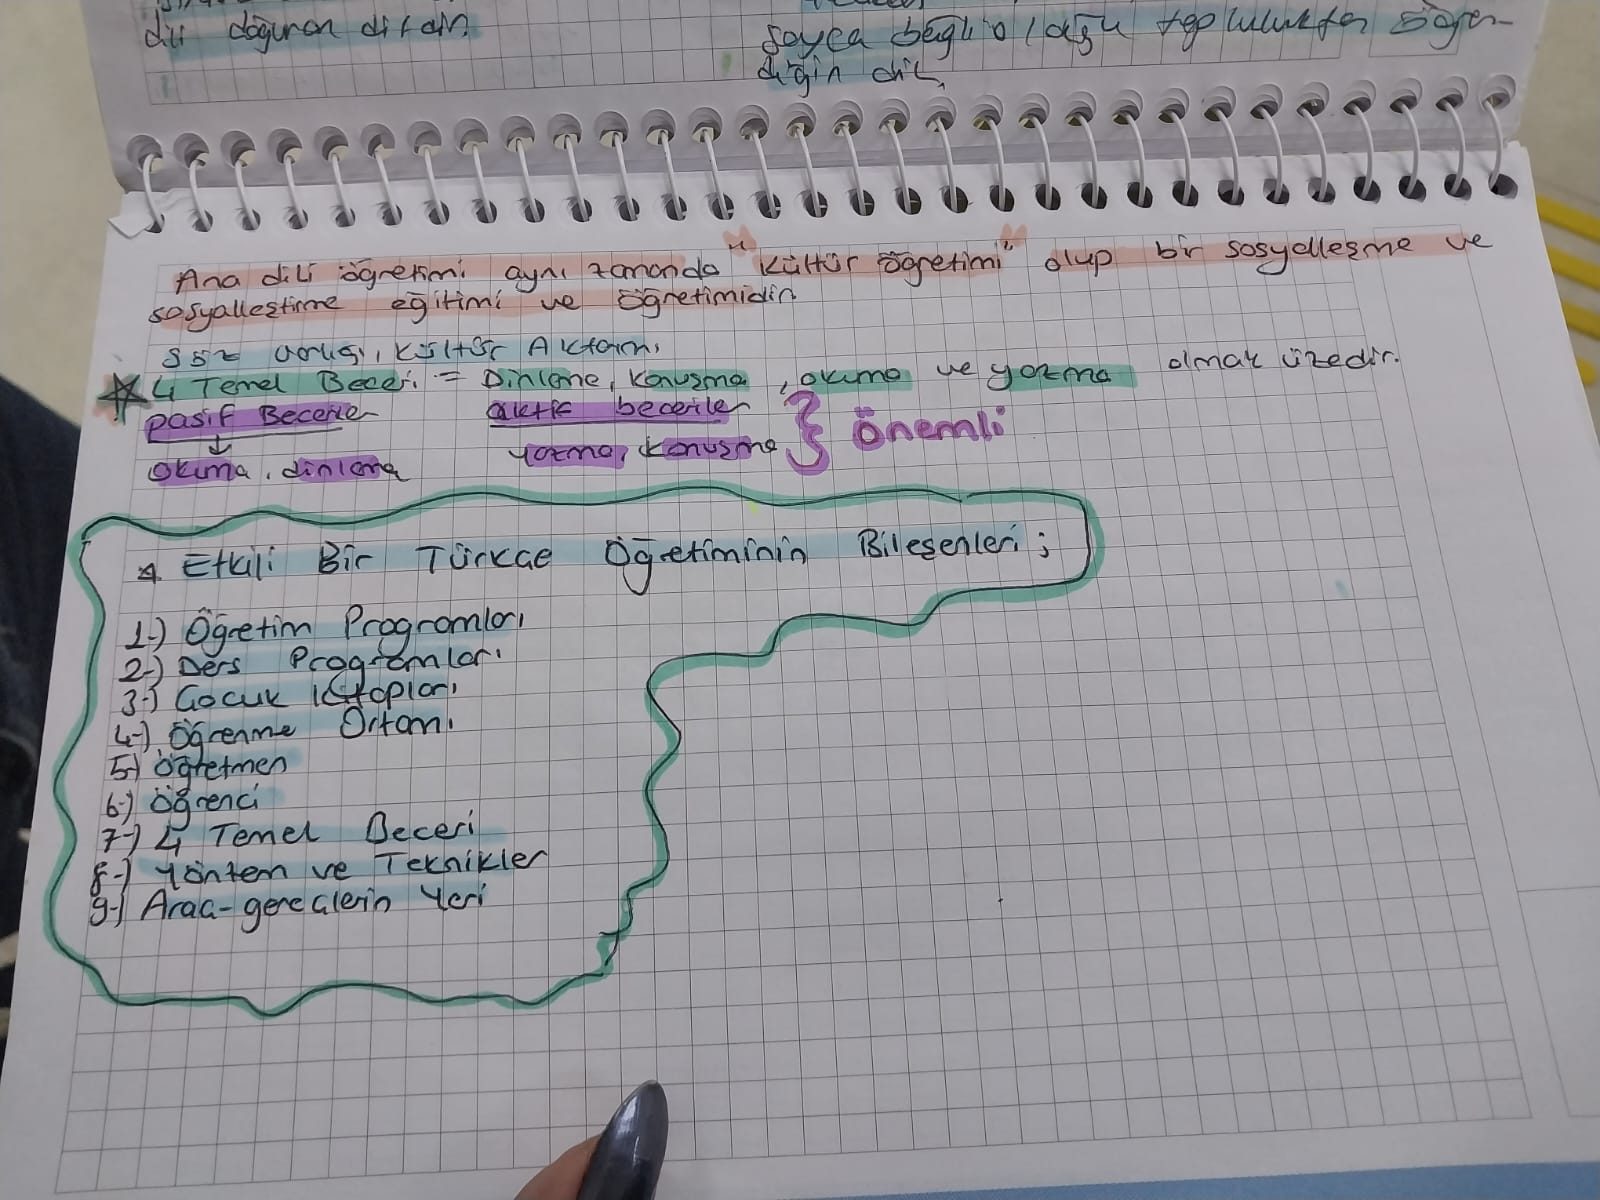 dili doğuran dildir.
soyca bağlı olduğu topluluktan öğren-
diğin dil.
Ana dili öğretimi aynı zamanda "Kültür öğretimi" olup bir sosyalleşme ve
sosyalleştirme eğitimi ve öğretimidir.
Söz varlığı, Kültür Aktarımı
4 Temel Beceri = Dinleme, konuşma, okuma ve yazma olmak üzedir.
pasif Beceriler aktif beceriler
okuma, dinleme yazma, konuşma } Önemli
Etkili Bir Türkçe Öğretiminin Bileşenleri;
1-) Öğretim Programları
2-) Ders Programları
3-) Çocuk Kitapları
4-) Öğrenme Ortamı
5-) Öğretmen
6-) Öğrenci
7-) 4 Temel Beceri
8-) Yöntem ve Teknikler
9-) Araç-gereçlerin Yeri